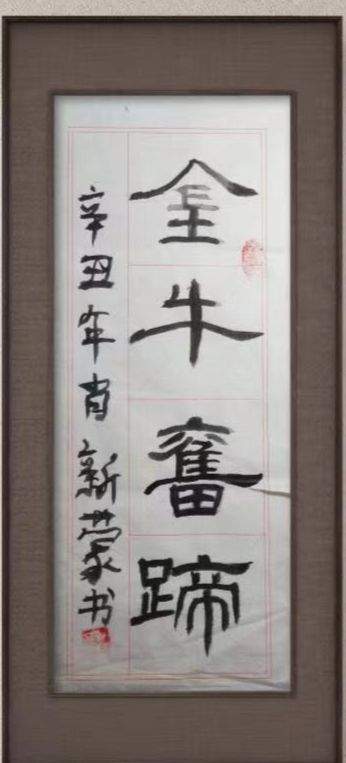 金牛奮蹄
辛丑年肖新蒙书